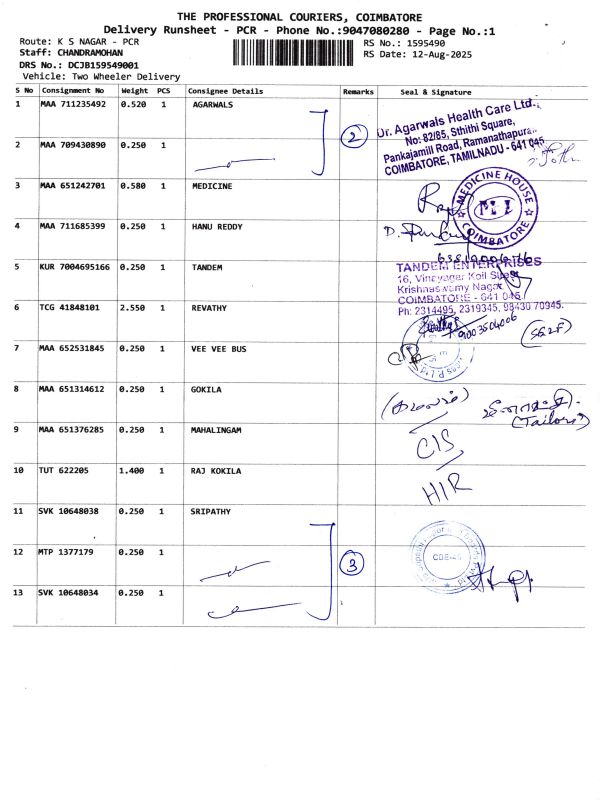 THE PROFESSIONAL COURIERS, COIMBATORE
Delivery Runsheet - PCR - Phone No.:9047080280 - Page No.:1
Route: K S NAGAR - PCR
Staff: CHANDRAMOHAN
DRS No.: DCJB159549001
Vehicle: Two Wheeler Delivery
RS No.: 1595490
RS Date: 12-Aug-2025
S No Consignment No Weight PCS Consignee Details Remarks Seal & Signature
1 MAA 711235492 0.520 1 AGARWALS
2 MAA 709430890 0.250 1
2
Dr. Agarwals Health Care Ltd.,
No: 82/85, Sthithi Square,
Pankajamill Road, Ramanathapura..
COIMBATORE, TAMILNADU - 641 045
3 MAA 651242701 0.580 1 MEDICINE
MEDICINE HOUSE
COIMBATORE
4 MAA 711685399 0.250 1 HANU REDDY
5 KUR 7004695166 0.250 1 TANDEM
TANDEM ENTERPRISES
16, Vinayagar Koil Street
Krishnaswamy Nagar
COIMBATORE - 641 045
Ph: 2314495, 2319345, 98430 70945.
6 TCG 41848101 2.550 1 REVATHY
9003504006
7 MAA 652531845 0.250 1 VEE VEE BUS
8 MAA 651314612 0.250 1 GOKILA
(Tailors)
9 MAA 651376285 0.250 1 MAHALINGAM
CIS
10 TUT 622205 1.400 1 RAJ KOKILA
HIR
11 SVK 10648038 0.250 1 SRIPATHY
12 MTP 1377179 0.250 1
3
CBE-45
13 SVK 10648034 0.250 1